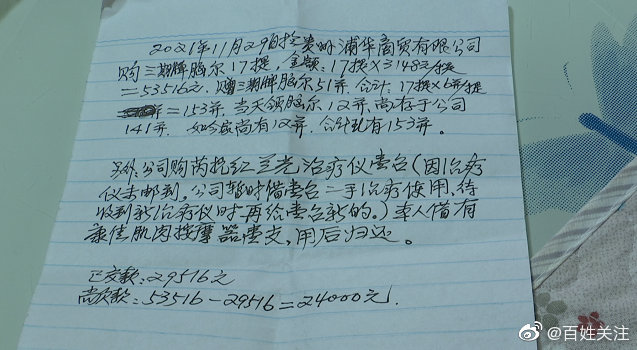 2021年11月29日 贵州浦华商贸有限公司
购三期牌脑尔17提,金额:17提×3148元/提
=53516元,赠三期牌脑尔51并,合计:17提×6并
=153并,当天领脑尔12并,尚存于公司
141并,如今家尚有12并,合计 有153并。
另外:公司购芮抗红兰光治疗仪壹台(因治疗
仪未邮到,公司暂时借壹台二手治疗使用,待
收到新治疗仪时再给壹台新的。)本人借有
康佳肌肉按摩器壹支,用后归还。
已交款:29516元
尚欠款:53516-29516=24000元.
@百姓关注